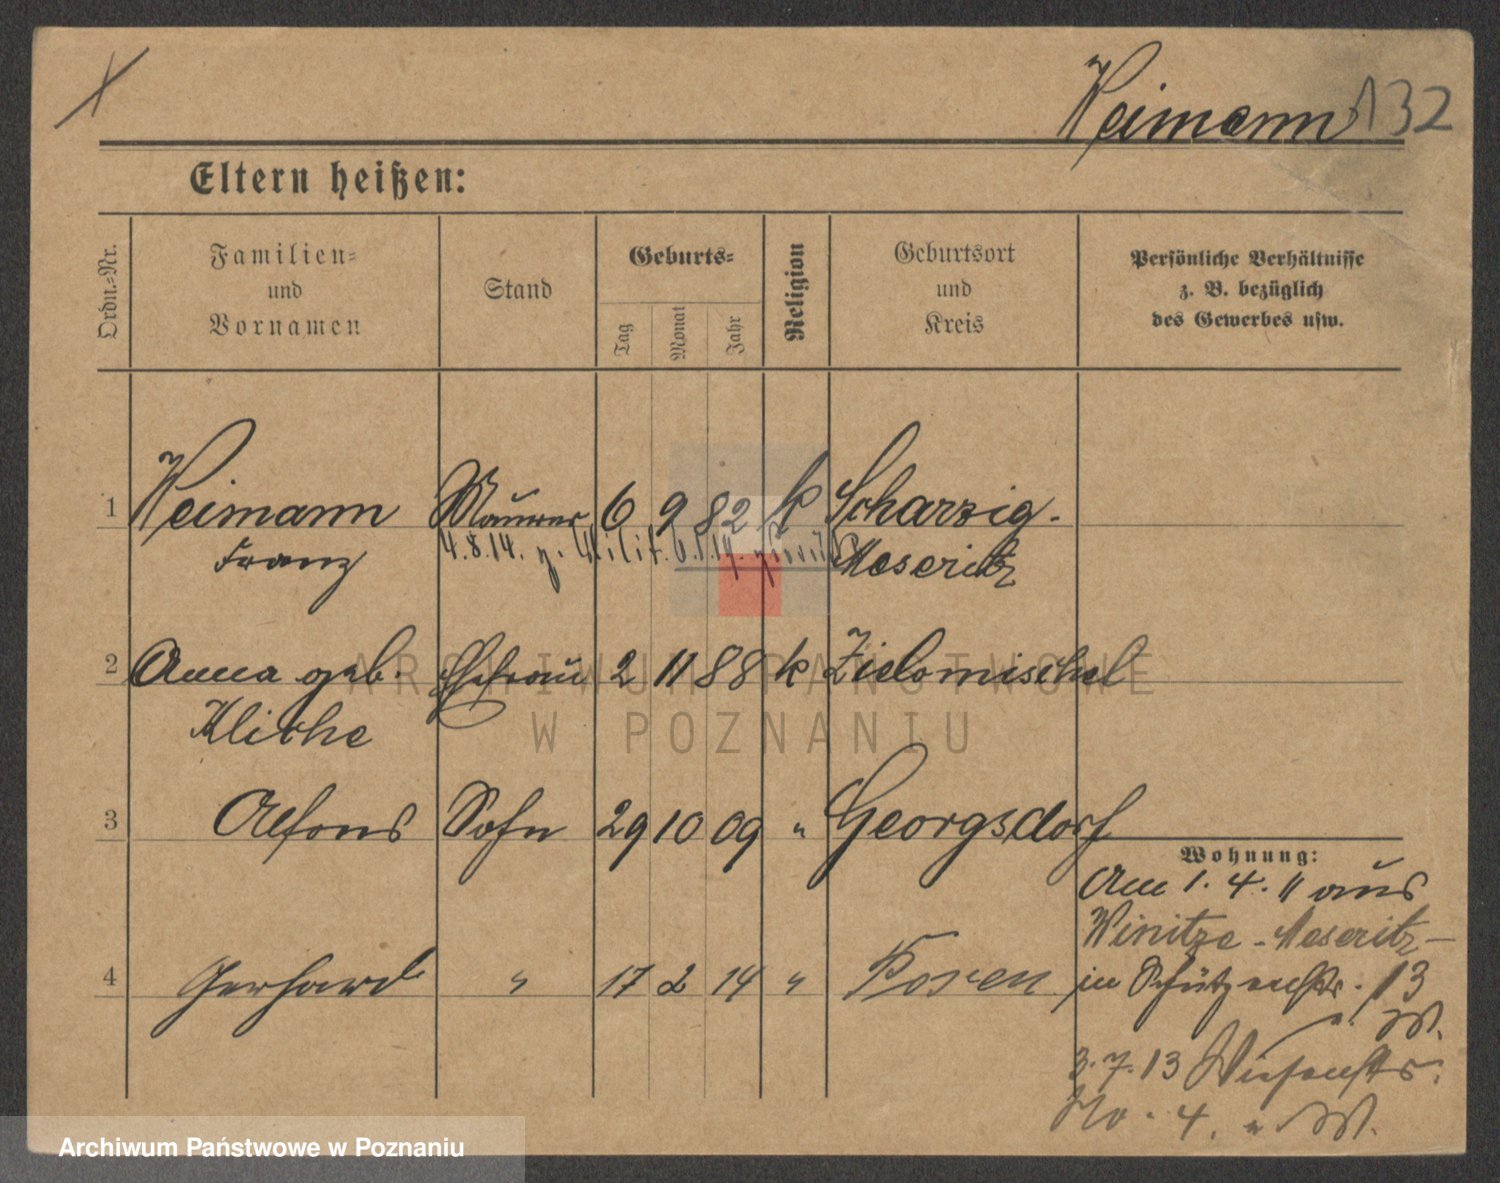 Weimann 132
Eltern heißen:
Ordn.-Nr.
Familien-
und
Vornamen
Stand
Geburts-
Tag
Monat
Jahr
Religion
Geburtsort
und
Kreis
Persönliche Verhältnisse
z. B. bezüglich
des Gewerbes usw.
1 Weimann Maurer 6 9 82 k Scharzig-
Franz 4.8.14. z. Milit. Meseritz
2 Anna geb. Ehefrau 2 11 88 k Zielomischel
Klishe
3 Alfons Sohn 29 10 09 " Georgsdorf
Wohnung:
Am 1. 4. 11 aus
Winitze - Meseritz -
4 Gerhard " 17 2 14 " Posen
in Schützenstr. 13
3.7.13 Wiesenstr.
No. 4.
ARCHIWUM PAŃSTWOWE
W POZNANIU
Archiwum Państwowe w Poznaniu